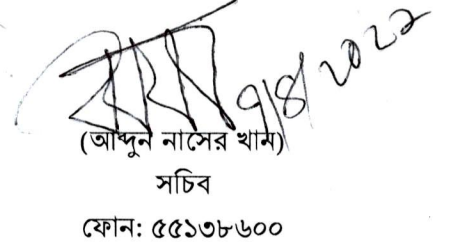 ৭/৪/২০২২
(আব্দুন নাসের খান)
সচিব
ফোন: ৫৫১৩৮৬০০